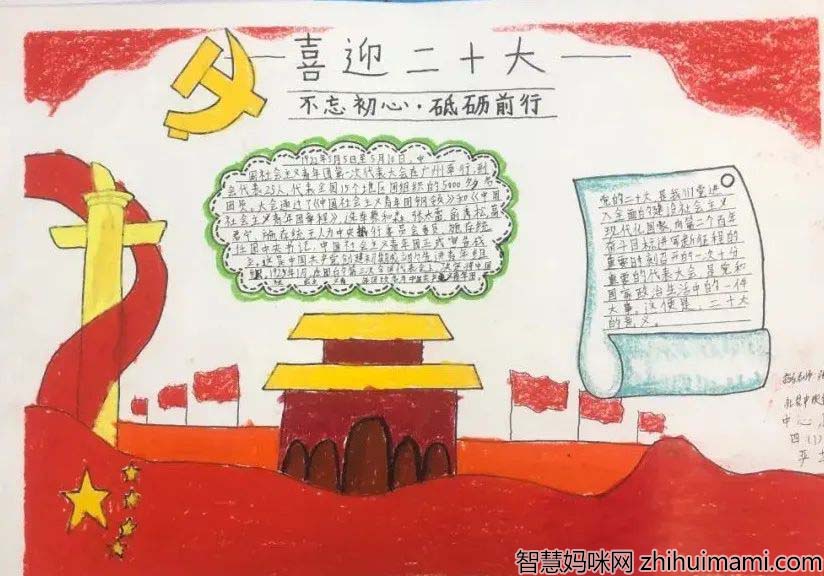 喜迎二十大
不忘初心·砥砺前行
1922年5月5日至5月10日，中
国社会主义青年团第一次代表大会在广州举行，到
会代表25人，代表全国15个地区团组织的5000多名
团员。大会通过了《中国社会主义青年团纲领》和《中国
社会主义青年团章程》，选举
中央执行委员会委员
任团中央书记，中国社会主义青年团正式宣告成
立。这是中国共产党创建和领导的先进青年组
党的二十大，是我们党进
入全面的建设社会主义
现代化国家，向第二个百年
奋斗目标进军新征程的
重要时刻召开的一次十分
重要的代表大会，是党和
国家政治生活中的一件
大事。这便是，二十大
的意义。
中心
四(1)
智慧妈咪网 zhihuimami.com